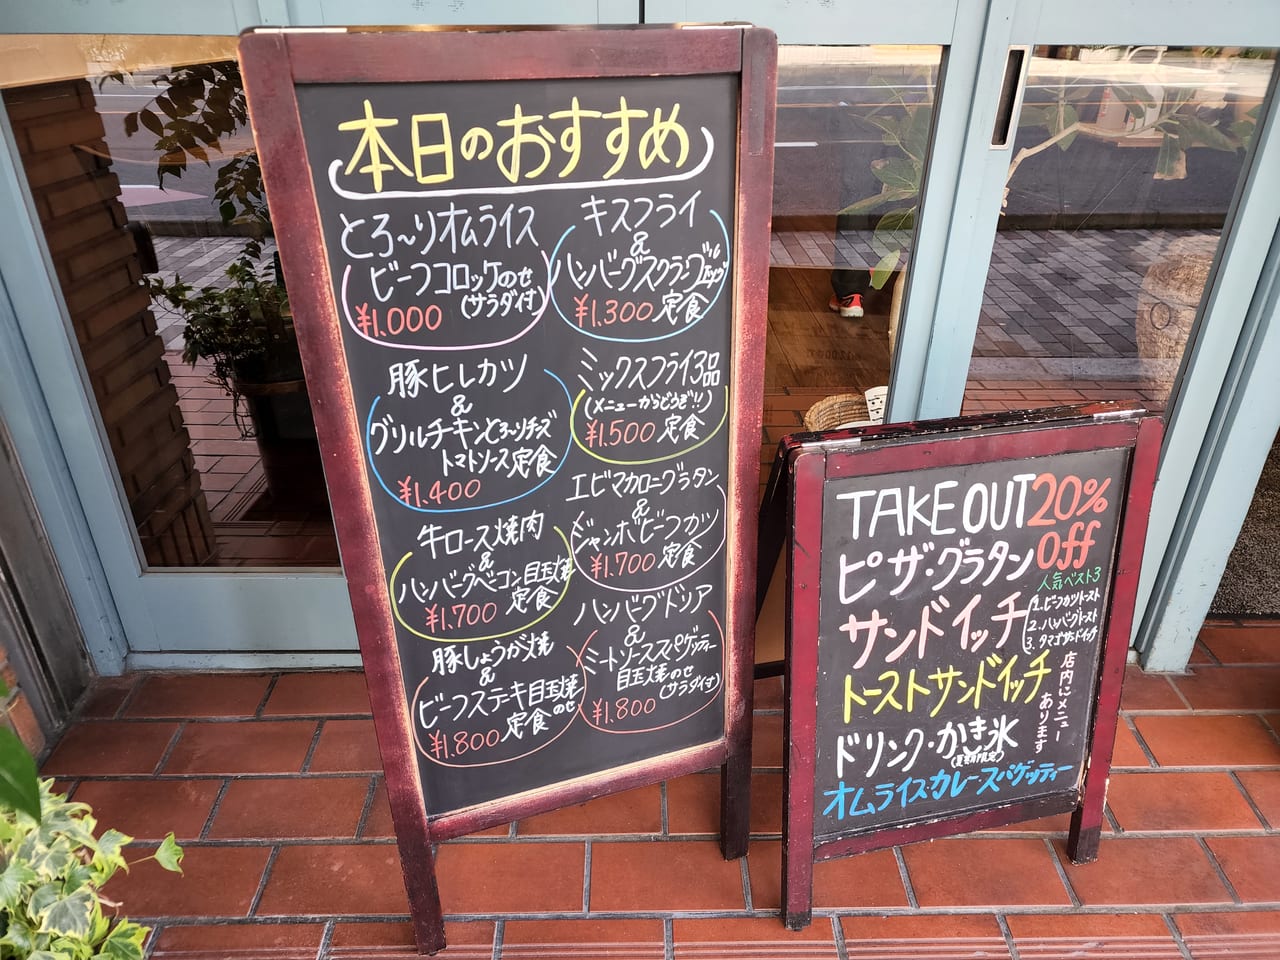 本日のおすすめ
とろ〜りオムライス
ビーフコロッケのせ
(サラダ付)
¥1.000
豚ヒレカツ
&
グリルチキンとろ〜りチーズ
トマトソース定食
¥1.400
牛ロース焼肉
&
ハンバーグベーコン目玉焼
定食
¥1.700
豚しょうが焼
&
ビーフステーキ目玉焼
のせ
定食
¥1.800
キスフライ
&
ハンバーグスクランブル
エッグ
¥1.300 定食
ミックスフライ3品
(メニューからどうぞ!!)
¥1.500 定食
エビマカロニグラタン
&
ジャンボビーフカツ
¥1.700 定食
ハンバーグドリア
&
ミートソーススパゲッティー
目玉焼のせ
(サラダ付)
¥1.800
TAKE OUT 20%
Off
ピザ・グラタン
サンドイッチ
トーストサンドイッチ
ドリンク・かき氷
(夏季限定)
オムライス・カレー・スパゲッティー
人気ベスト3
1. ビーフカツトースト
2. ハンバーグトースト
3. タマゴサンドイッチ
店内にメニュー
あります